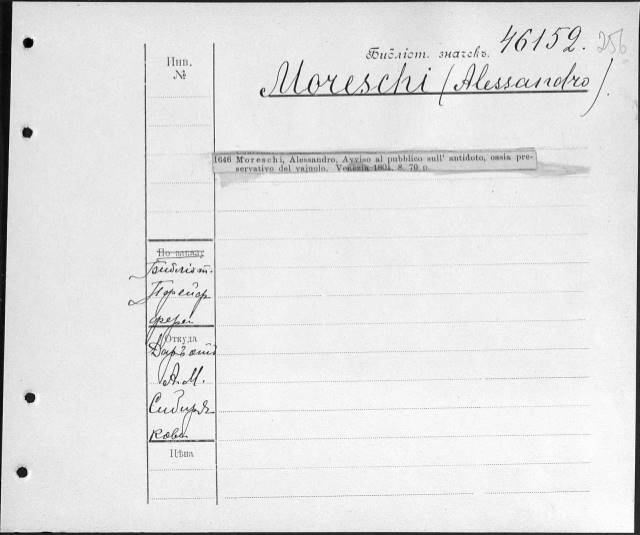 Инв.
№
Бібліот. значекъ. 46152. 256
Moreschi (Alessandro).
1646 Moreschi, Alessandro, Avviso al pubblico sull' antidoto, ossia pre-
servativo del vajuolo. Venezia 1801. 8. 70 p.
По заказу
Библіот.
Пфейф
фера
Откуда
Даръ отъ
А. М.
Сибиря-
кова
Цѣна